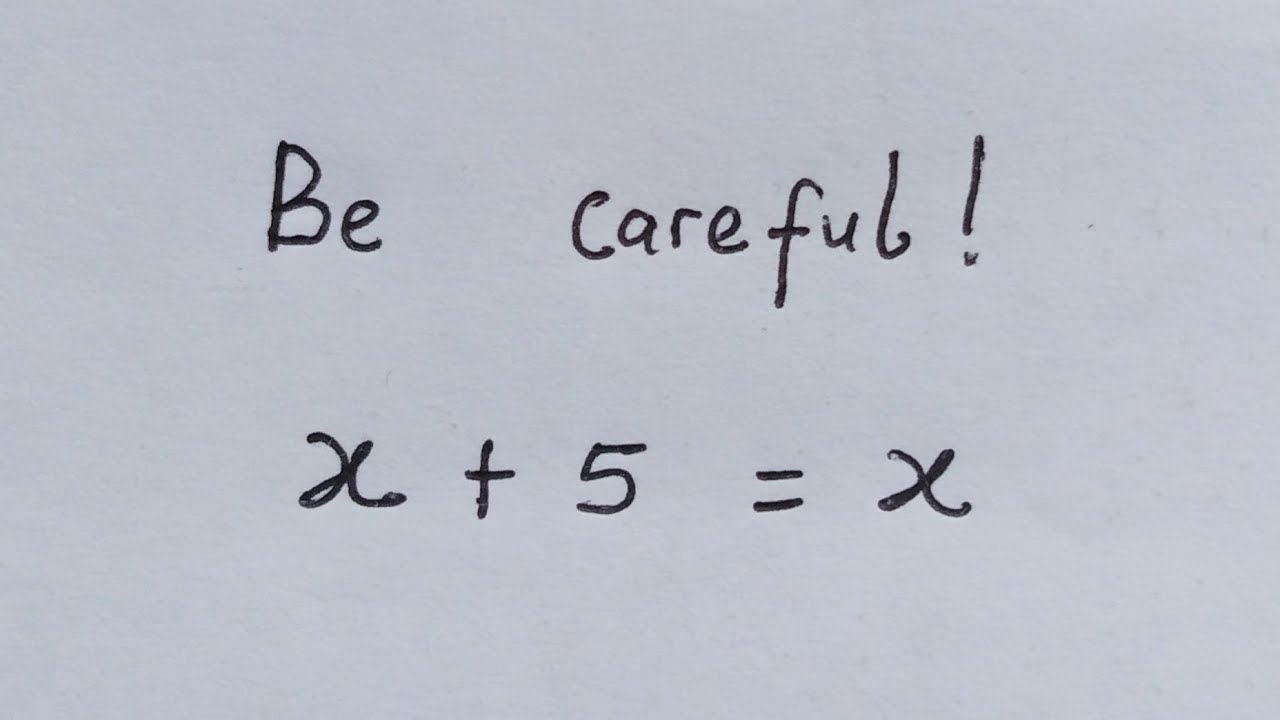 Be careful!
x + 5 = x